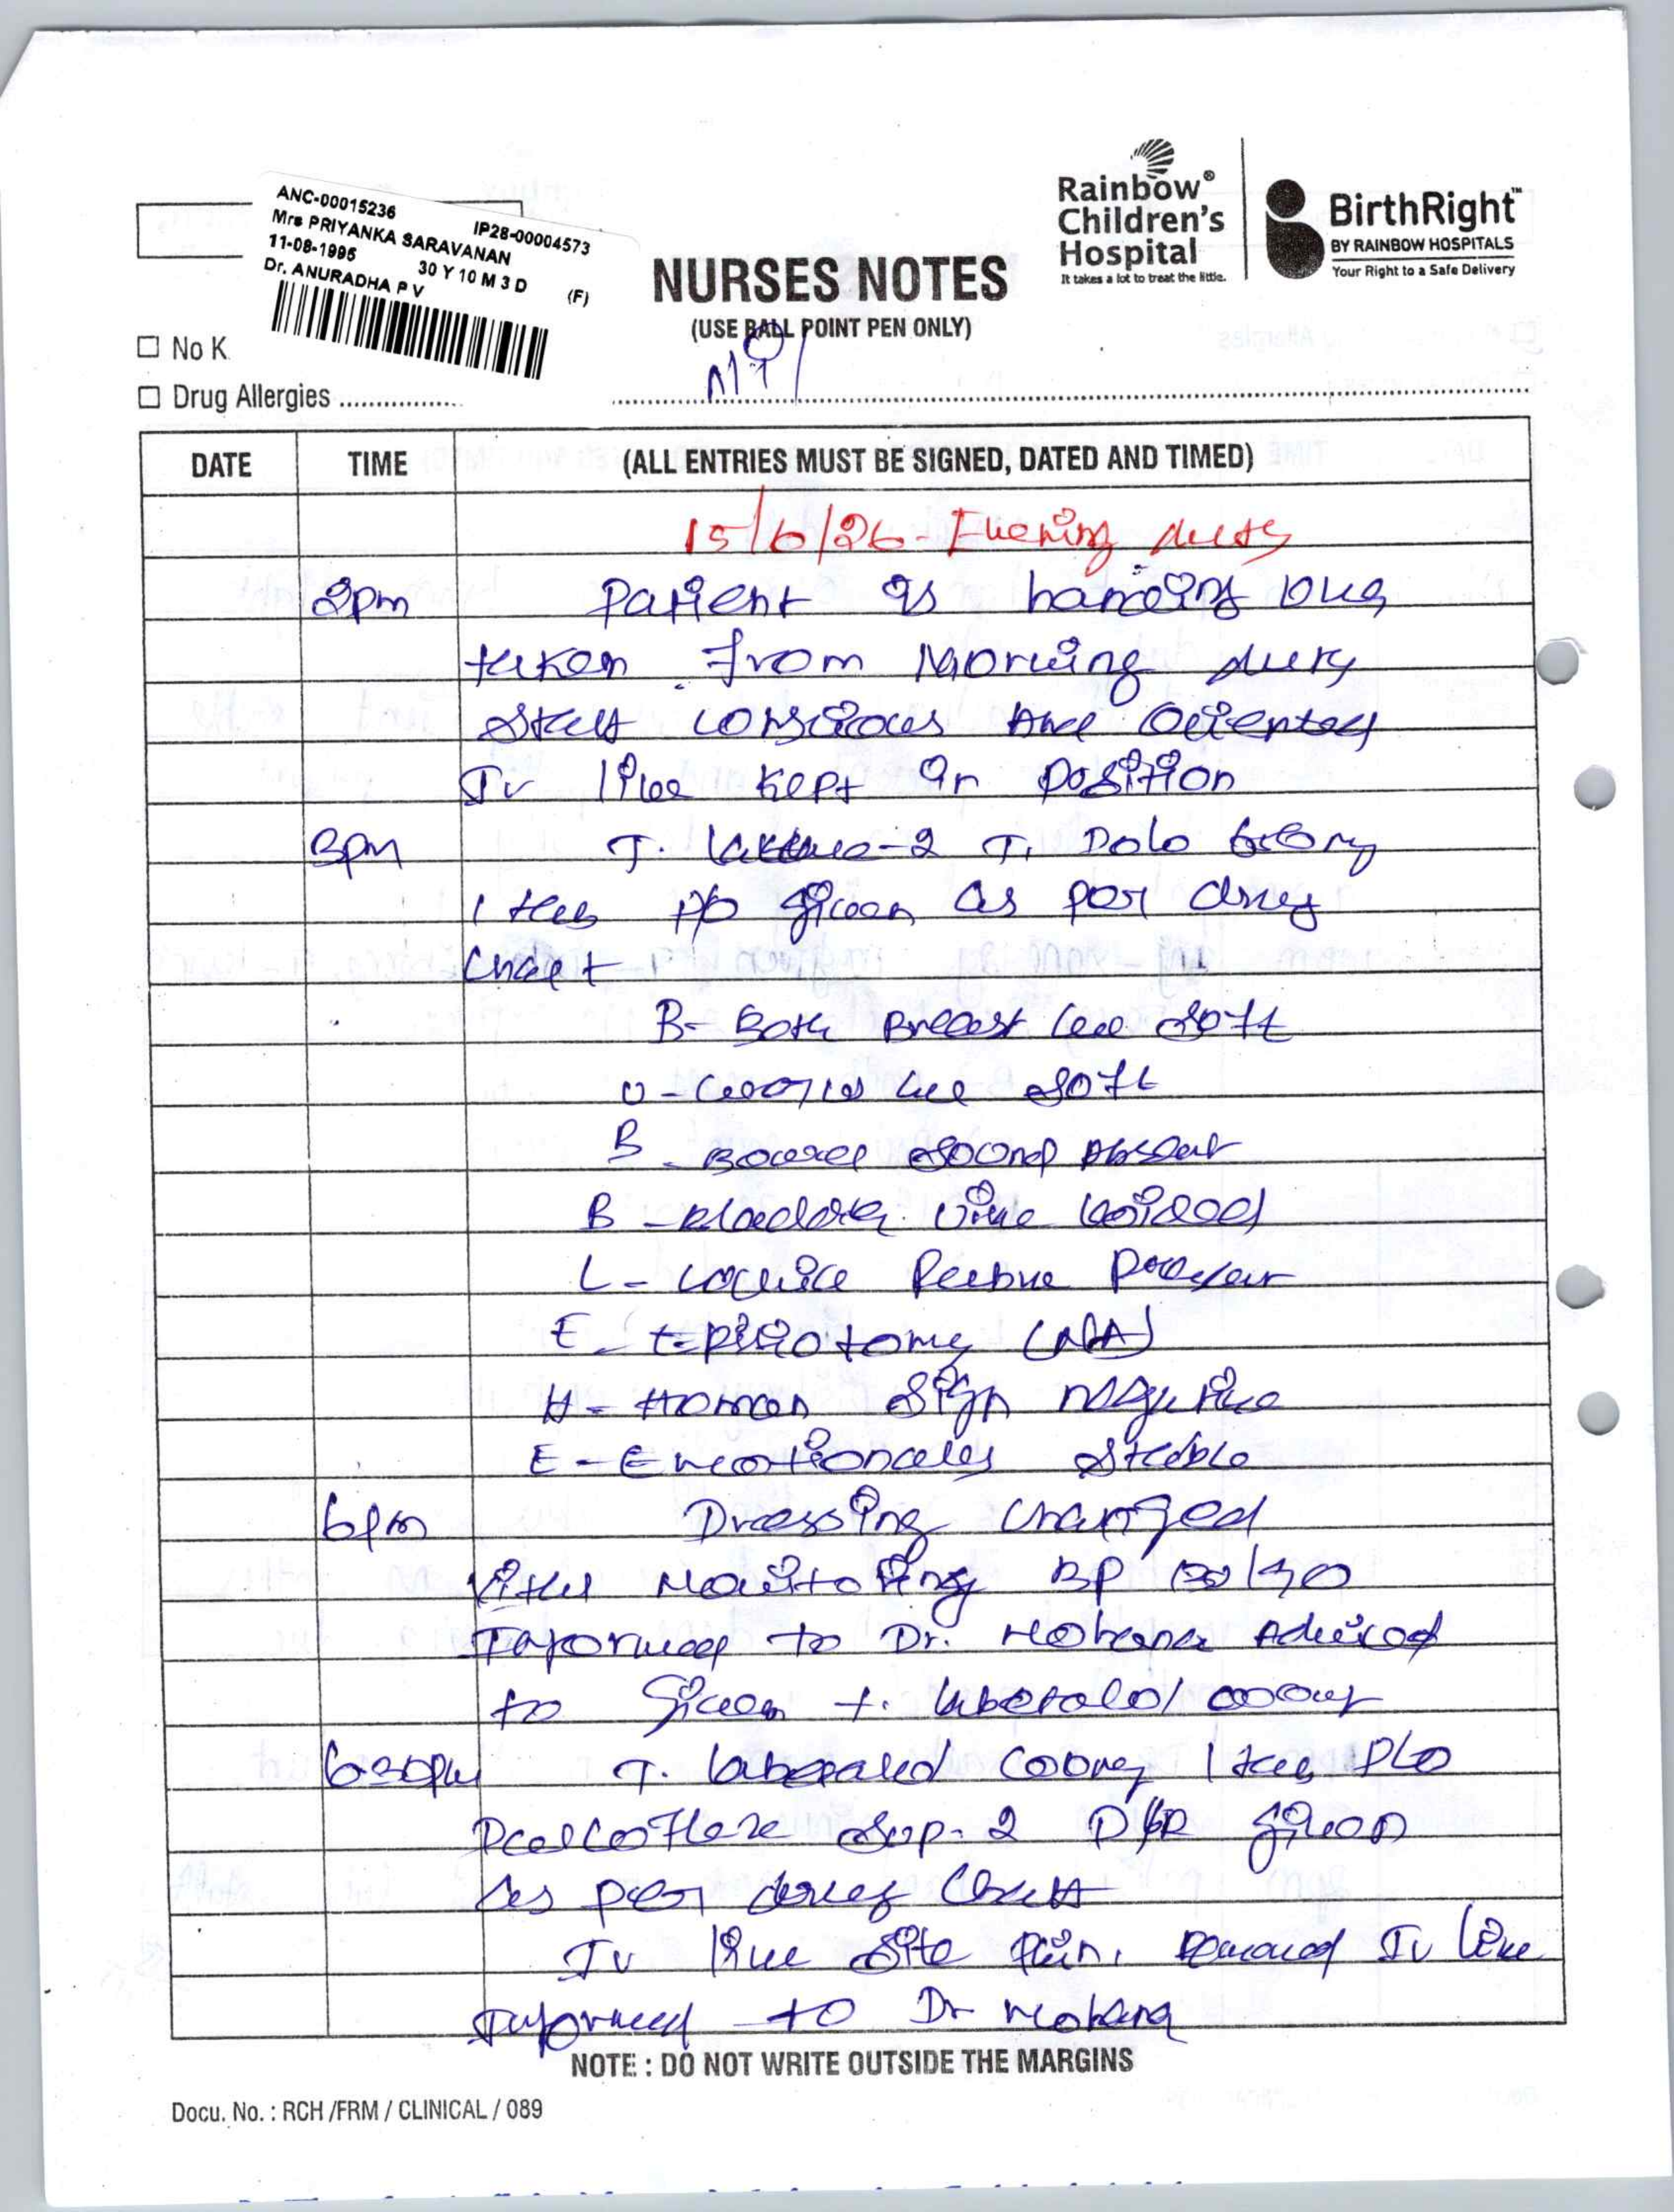 ANC-00015236
IP28-00004573
Mrs PRIYANKA SARAVANAN
11-08-1995 30 Y 10 M 3 D (F)
Dr. ANURADHA P V
Rainbow®
Children's
Hospital
It takes a lot to treat the little.
BirthRight™
BY RAINBOW HOSPITALS
Your Right to a Safe Delivery
NURSES NOTES
(USE BALL POINT PEN ONLY)
No K
Drug Allergies
DATE TIME (ALL ENTRIES MUST BE SIGNED, DATED AND TIMED)
15/6/26 - Evening duty
2pm Patient is handing over
taken from Morning duty
Staff conscious and Oriented
Iv line kept in position
3pm T. - 2 T. Dolo
1 tab p/o given as per drug
chart
B - Both Breast are soft
U - are soft
B - Bowel sound
B - Bladder voided
L - 
E - Episiotomy (NA)
H - Homan Sign negative
E - Emotionales stable
6pm Dressing changed
Vital Monitoring BP
Informed to Dr. Mobana Adviced
to Given t.
6:30pm T. 1 tab P/o
Sup - 2 P/R given
as per drug chart
Iv line site pain, removed Iv line
Informed to Dr Mobana
NOTE : DO NOT WRITE OUTSIDE THE MARGINS
Docu. No. : RCH /FRM / CLINICAL / 089